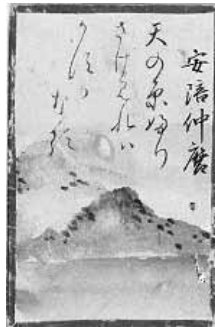 安陪仲麿
天の原ふり
さけみれハ
かすかなる